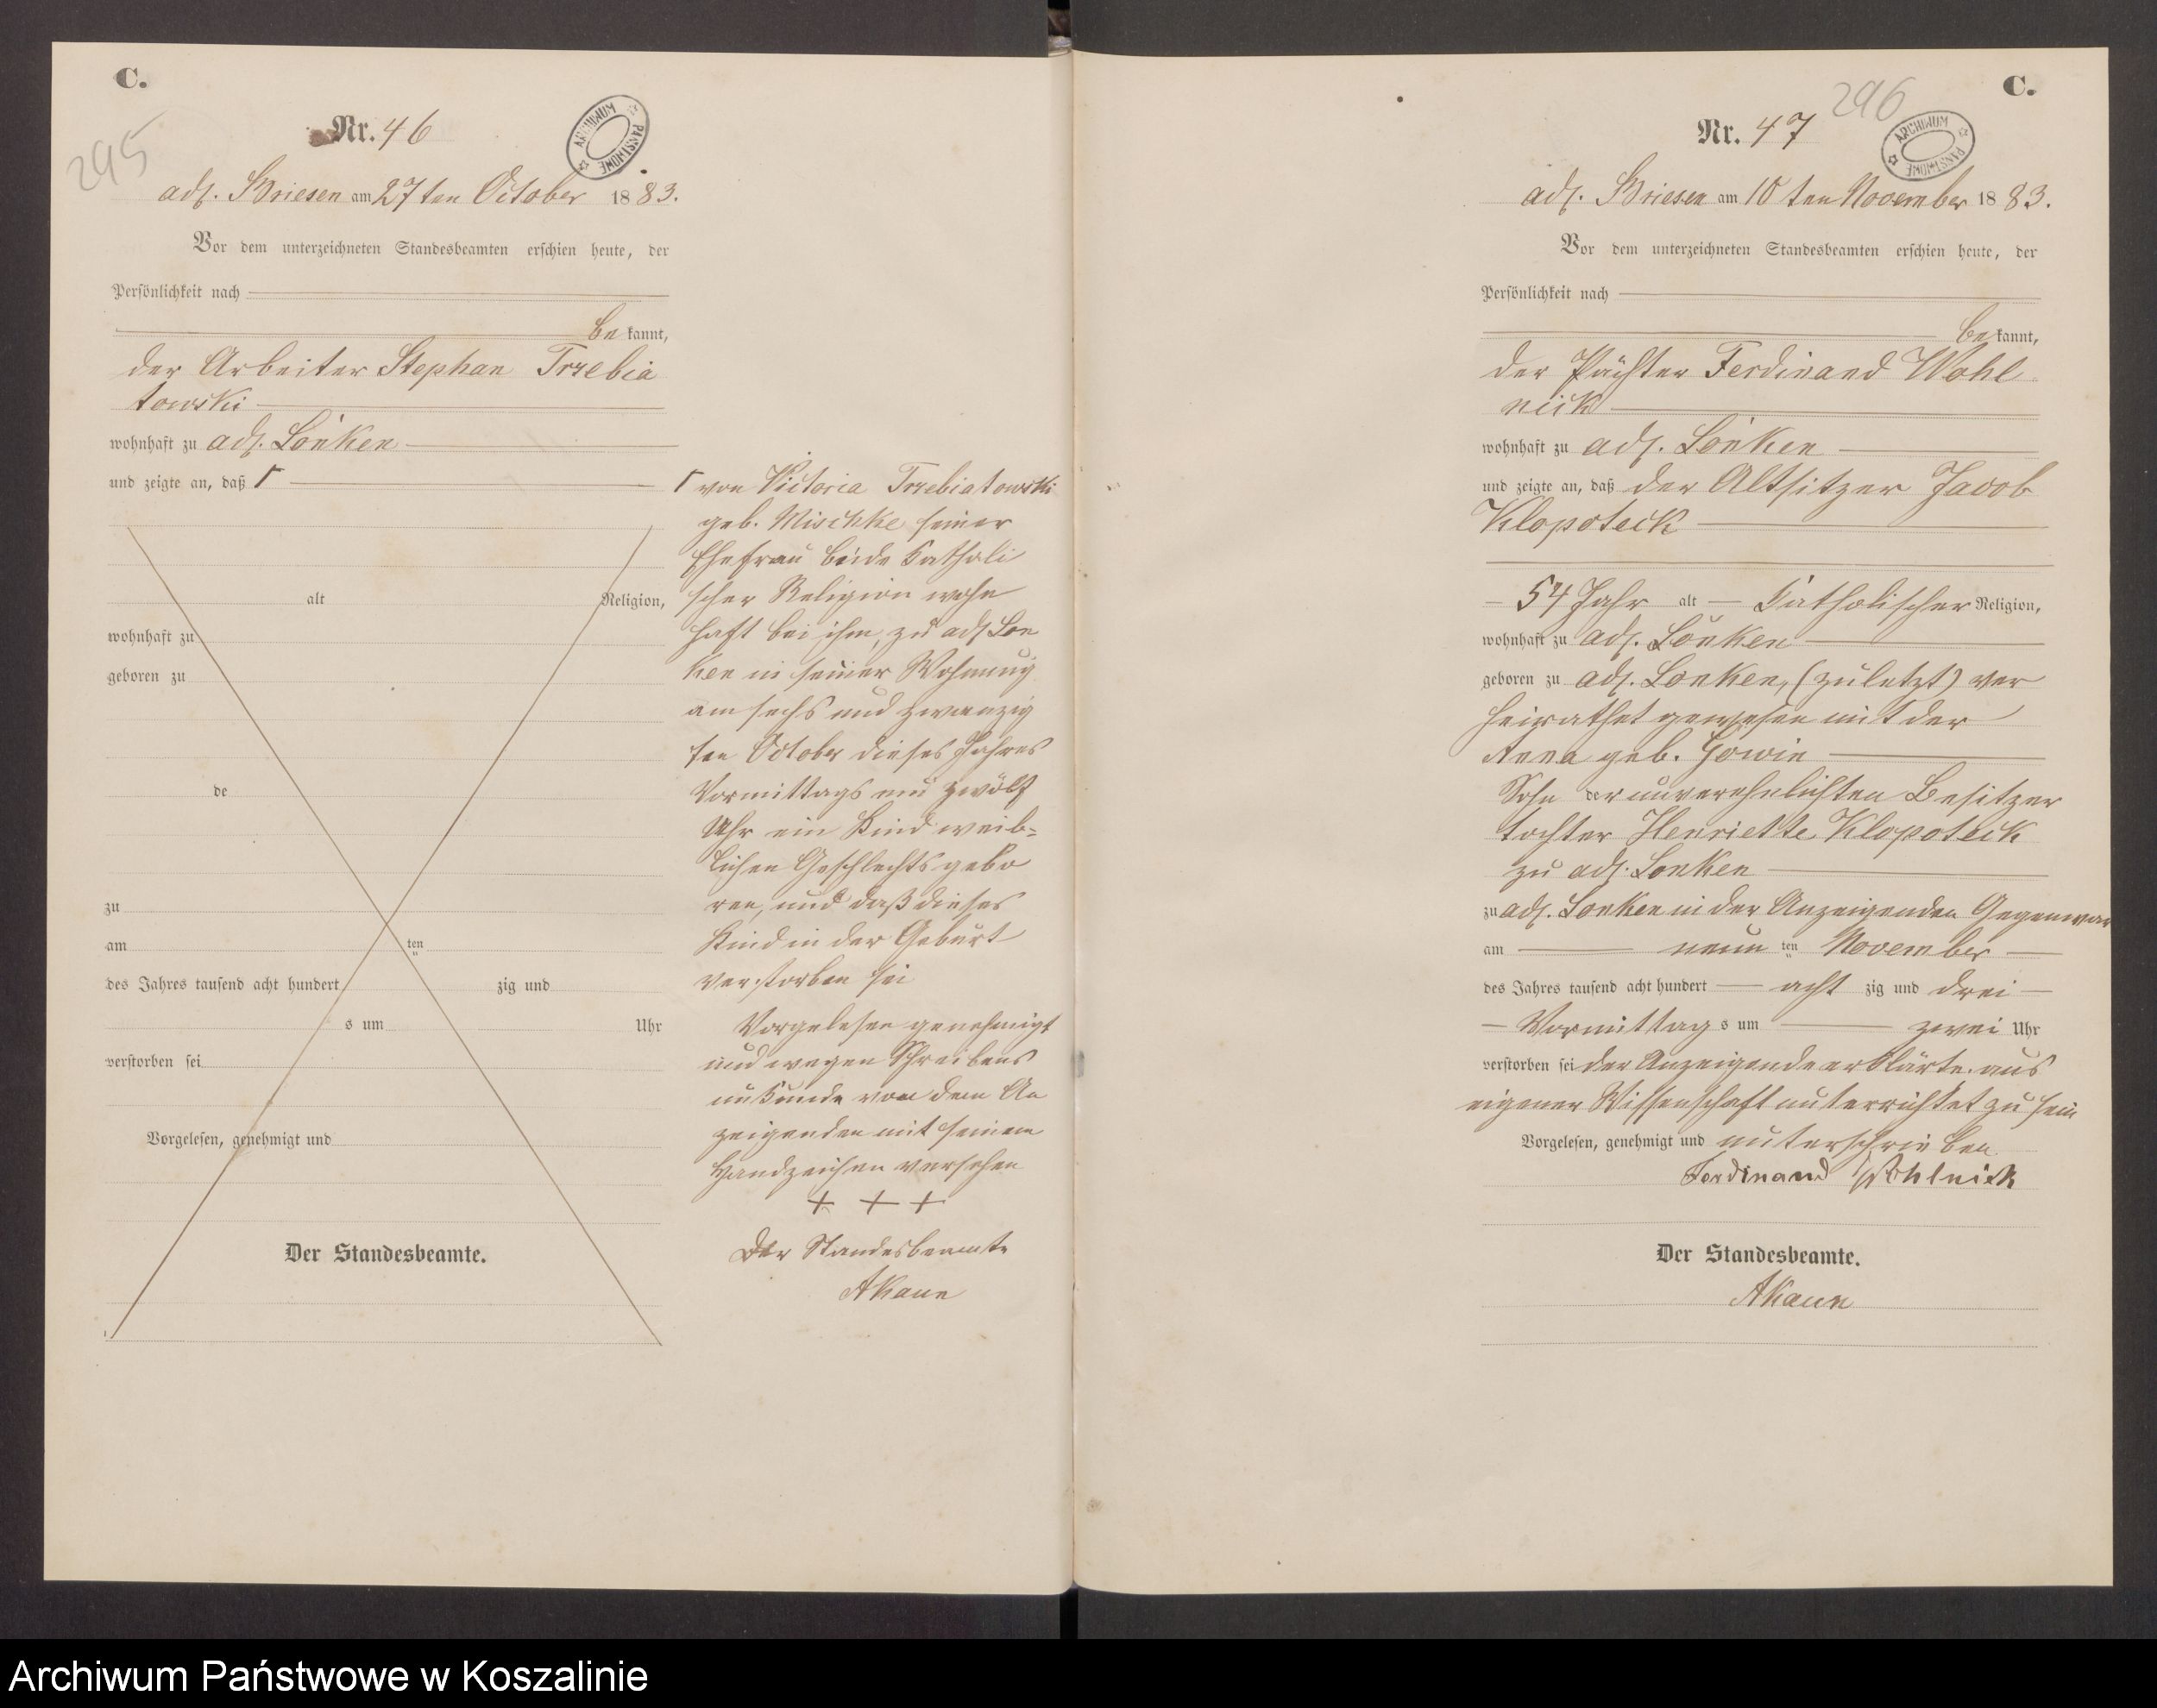 C.
295
Nr. 46
ARCHIWUM PAŃSTWOWE
adl. Briesen am 27ten October 1883.
Vor dem unterzeichneten Standesbeamten erschien heute, der
Persönlichkeit nach
be kannt,
der Arbeiter Stephan Trzebia
towski
wohnhaft zu adl. Lonken
und zeigte an, daß Γ
alt Religion,
wohnhaft zu
geboren zu
de
zu
am ten
des Jahres tausend acht hundert zig und
s um Uhr
verstorben sei
Vorgelesen, genehmigt und
Der Standesbeamte.
Γ von Victoria Trzebiatowski
geb. Mischke seiner
Ehefrau beide katholi
scher Religion wohn
haft bei ihm, zu adl Lon
ken in seiner Wohnung
am sechs und zwanzig
ten October dieses Jahres
Vormittags um zwölf
Uhr ein Kind weib=
lichen Geschlechts gebo
ren, und daß dieses
Kind in der Geburt
verstorben sei
Vorgelesen genehmigt
und wegen Schreibens
unkunde von dem An
zeigenden mit seinem
Handzeichen versehen
+ + +
Der Standesbeamte
AKaun
C.
296
Nr. 47
ARCHIWUM PAŃSTWOWE
adl. Briesen am 10ten November 1883.
Vor dem unterzeichneten Standesbeamten erschien heute, der
Persönlichkeit nach
be kannt,
der Pächter Ferdinand Wohl
neik
wohnhaft zu adl. Lonken
und zeigte an, daß der Altsitzer Jacob
Klopoteck
54 Jahr alt Katholischer Religion,
wohnhaft zu adl. Lonken
geboren zu adl. Lonken, (zuletzt) ver
heirathet gewesen mit der
Anna geb. Gowin
Sohn der unverehelichten Besitzer
tochter Henriette Klopoteck
zu adl. Lonken
zu adl. Lonken in der Anzeigenden Gegenwar
am neun ten November
des Jahres tausend acht hundert acht zig und drei
Vormittag s um zwei Uhr
verstorben sei der Anzeigende erklärte. aus
eigener Wissenschaft unterrichtet zu sein
Vorgelesen, genehmigt und unterschrieben
Ferdinand Wohlneik
Der Standesbeamte.
AKaun
Archiwum Państwowe w Koszalinie